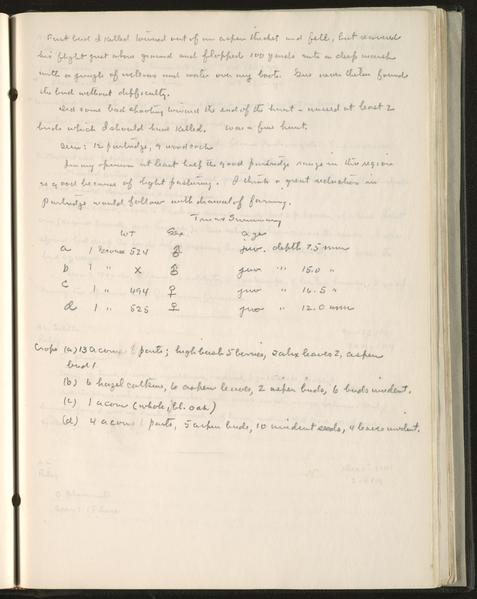 First bird I killed towered out of an aspen thicket and fell, but resumed
his flight just above ground and flopped 100 yards into a deep marsh
with a jungle of willows and water over my boots. Gus nevertheless found
the bird without difficulty.
Did some bad shooting toward the end of the hunt - missed at least 2
birds which I should have killed. Was a fine hunt.
Seen: 12 partridge, 9 woodcock
In my opinion at least half the good partridge range in this region
is good because of light pasturing. I think a great reduction in
partridge would follow withdrawal of farming.
Summary
Wt Sex age
a 1 524 ♂ juv. depth 7.5 mm
b 1 " X ♂ juv " 15.0 "
c 1 " 494 ♀ juv " 16.5 "
d 1 " 525 ♀ juv " 12.0 mm
Crops (a) 13 acorn parts; highbush 5 berries, salix leaves 2, aspen
bud 1
(b) 6 hazel catkins, 6 aspen leaves, 2 aspen buds, 6 buds unident.
(c) 1 acorn (whole, bl. oak)
(d) 4 acorn parts, 5 aspen buds, 10 unident seeds, 4 leaves unident.